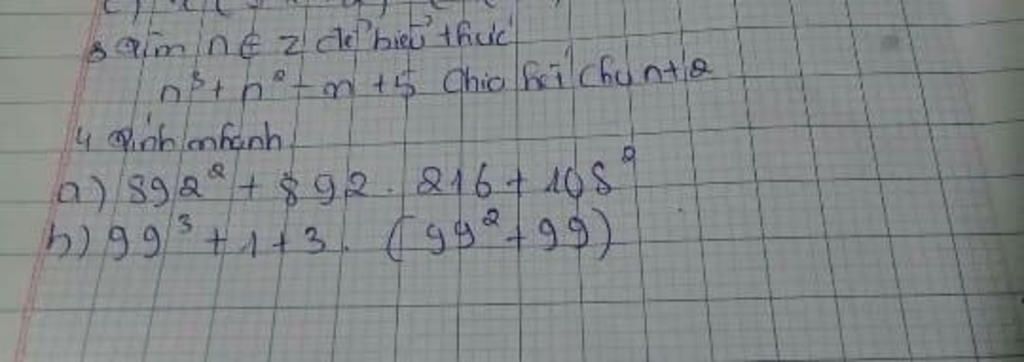 3 Tìm n ∈ Z để biểu thức
n³ + n² - n + 5 Chia hết cho n+2
4 Tính nhanh
a) 892² + 892 . 216 + 108²
b) 99³ + 1 + 3. (99² + 99)